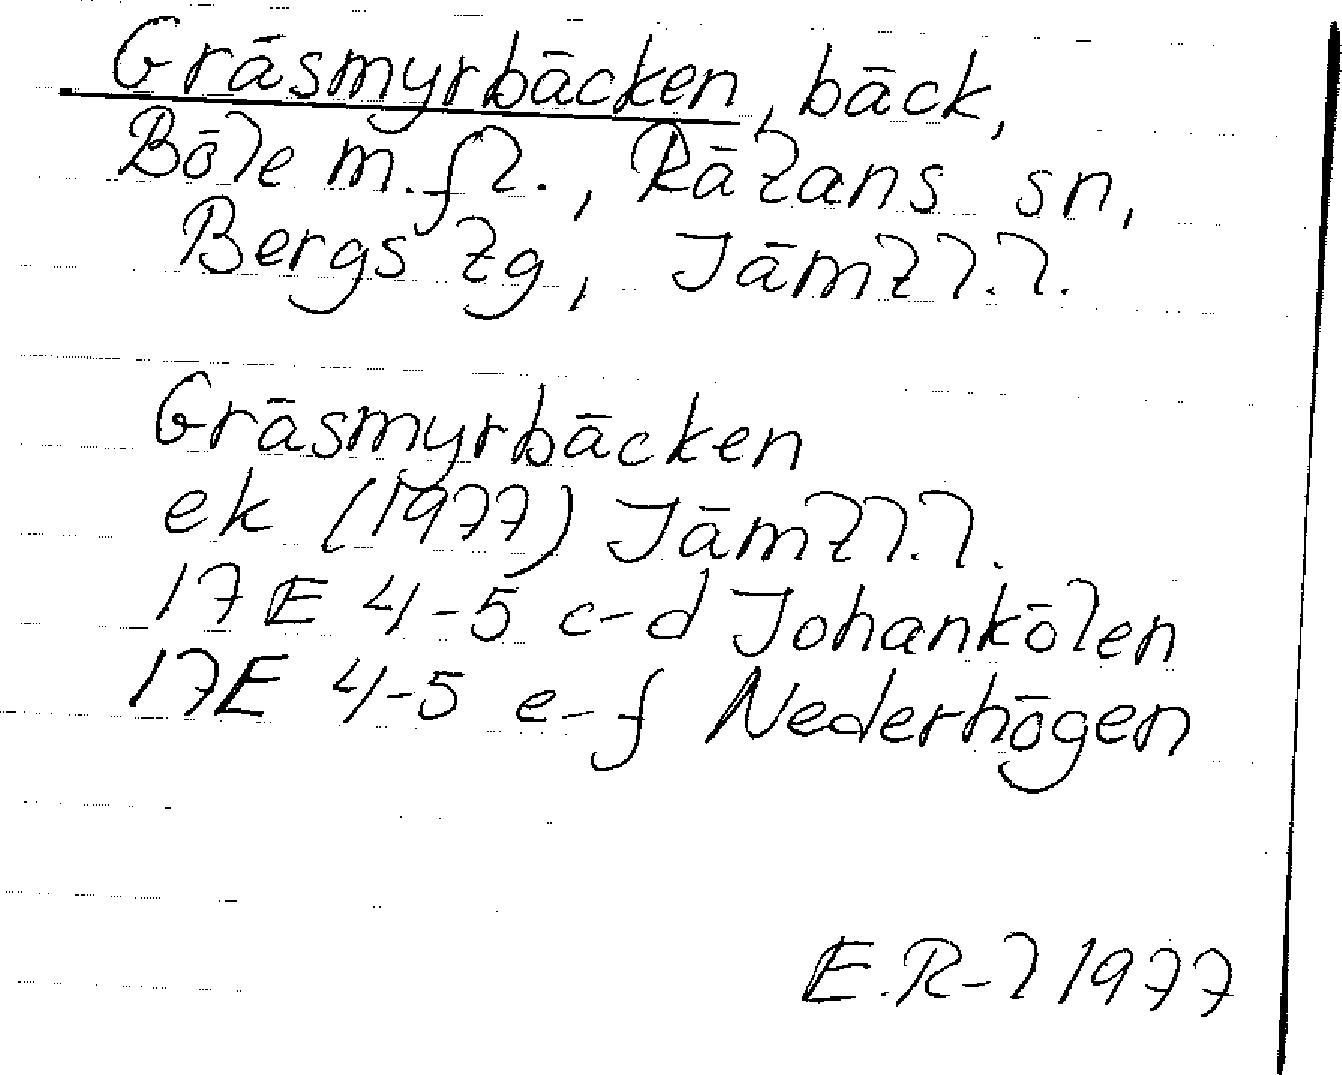 Gräsmyrbäcken, bäck,
Böle m.fl., Rätans sn,
Bergs tg, Jämtl.l.
Gräsmyrbäcken
ek (1977) Jämtl.l.
17E 4-5 c-d Johankölen
17E 4-5 e-f Nederhögen
E.R-l 1977